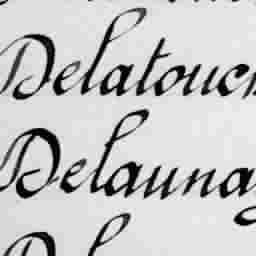 Delatouch
Delaunay